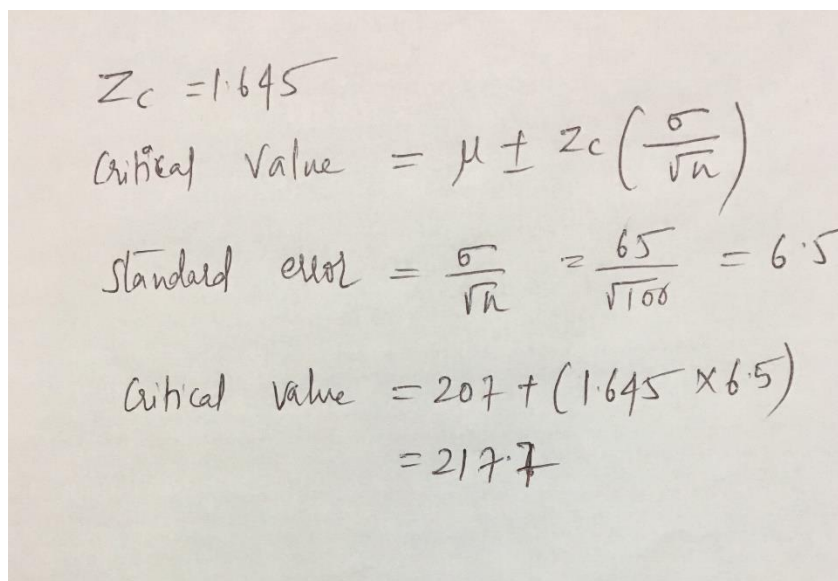 Zc = 1.645
Critical Value = μ ± Zc (σ/√n)
Standard error = σ/√n = 65/√100 = 6.5
Critical value = 207 + (1.645 × 6.5)
= 217.7